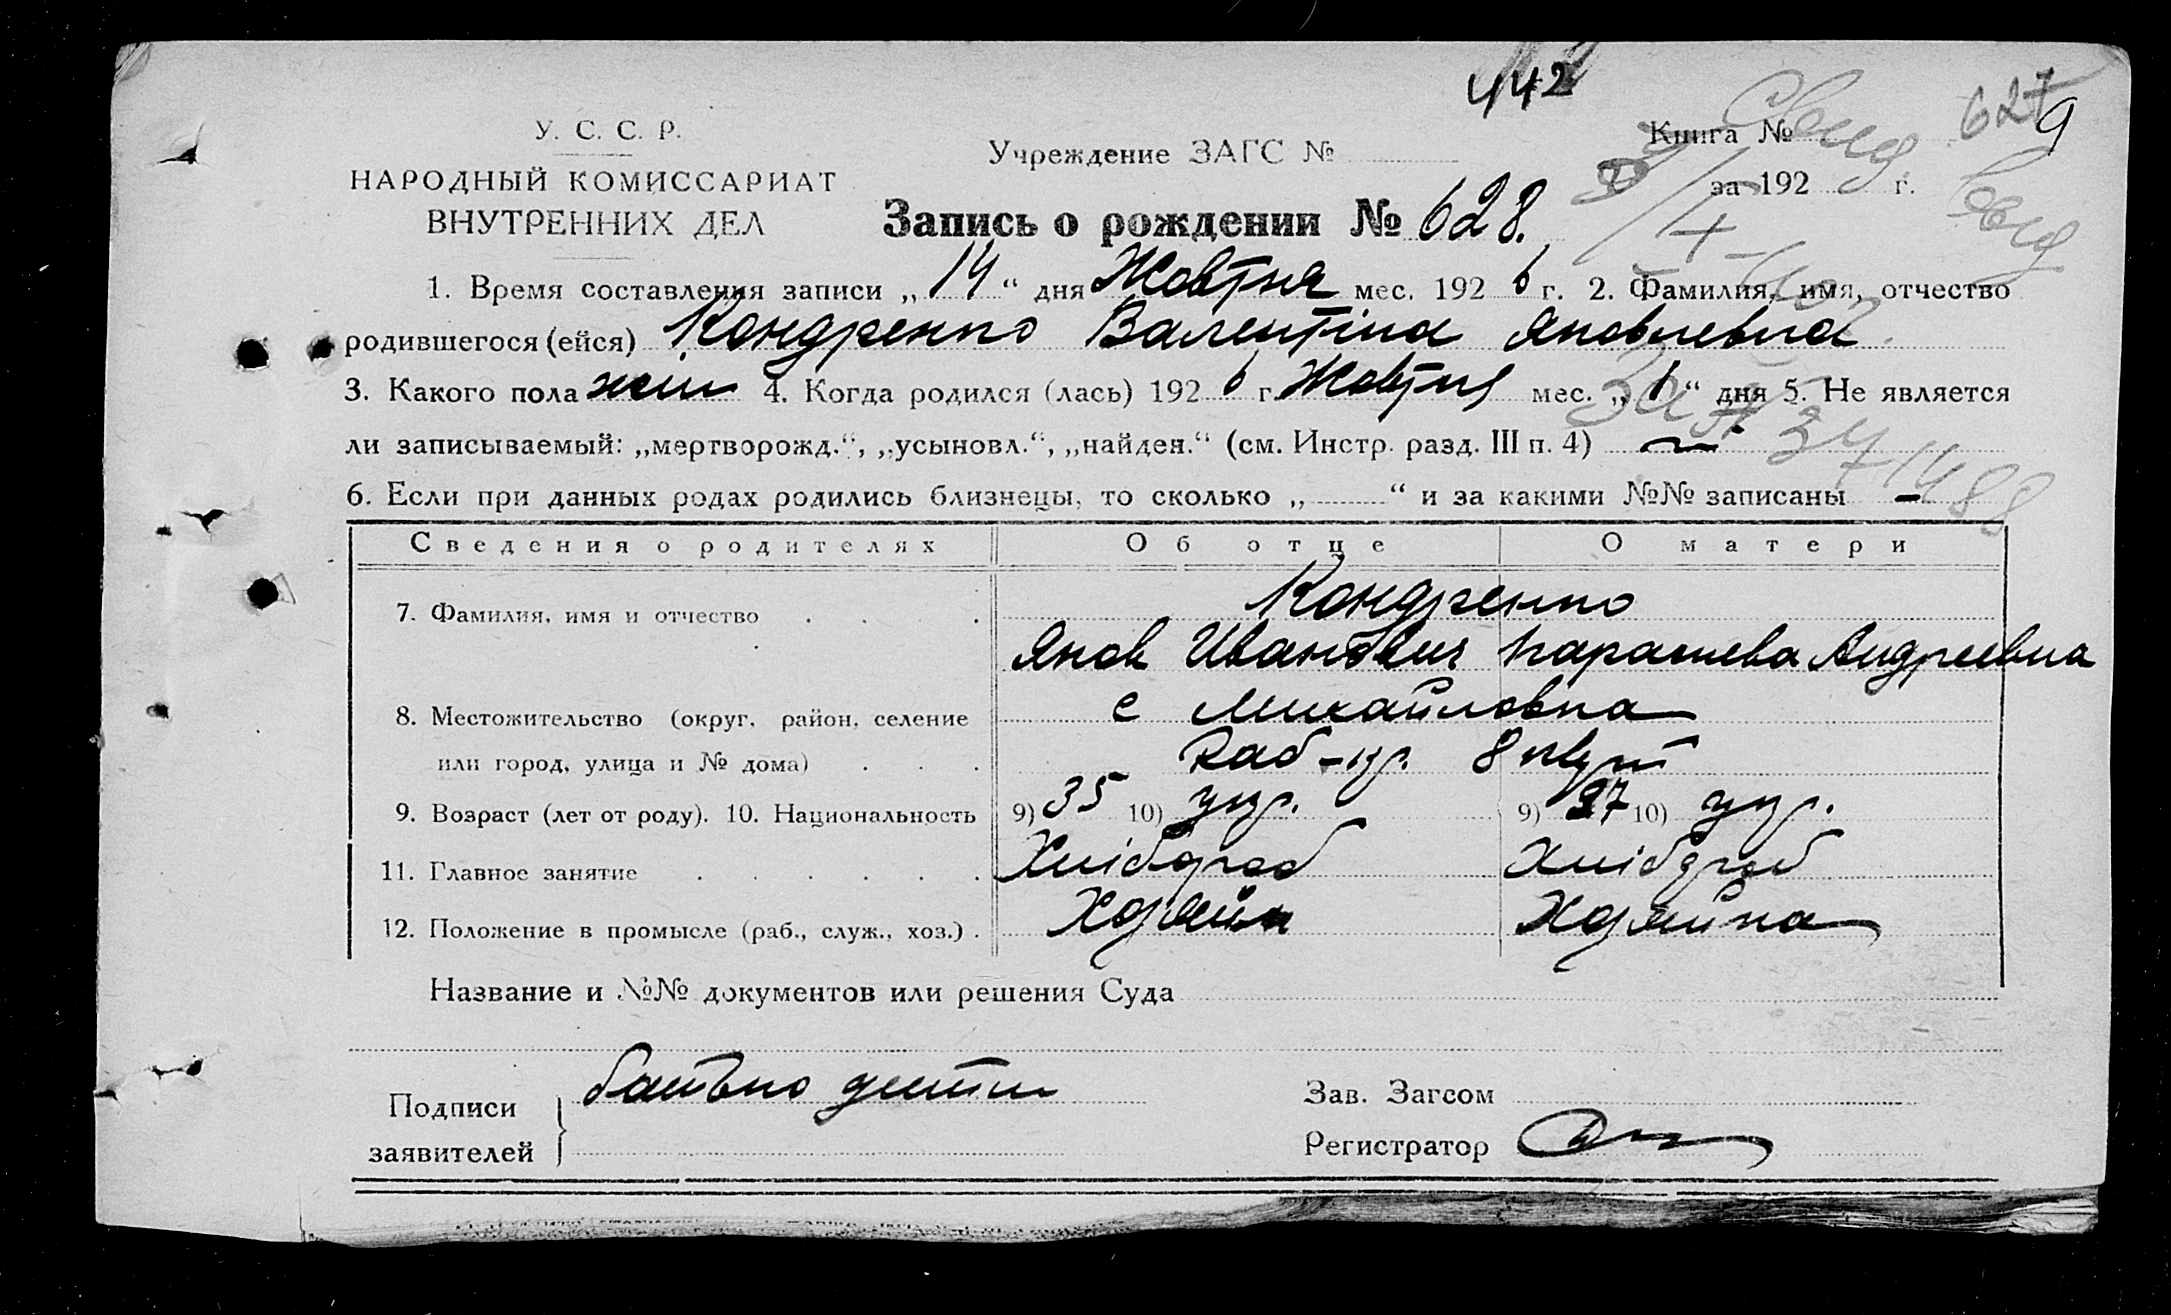 442
627
9
У. С. С. Р.
НАРОДНЫЙ КОМИССАРИАТ
ВНУТРЕННИХ ДЕЛ
Учреждение ЗАГС №
Книга №
за 192 г.
Свид
Свид
Запись о рождении № 628.
1. Время составления записи „14“ дня Жовтня мес. 1926 г. 2. Фамилия, имя, отчество
родившегося (ейся) Кондренко Валентіна Яковлевна
3. Какого пола жін 4. Когда родился (лась) 1926 г. Жовтня мес. „6“ дня 5. Не является
ли записываемый: „мертворожд.“, „усыновл.“, „найден.“ (см. Инстр. разд. III п. 4)
6. Если при данных родах родились близнецы, то сколько „ “ и за какими №№ записаны —
Сведения о родителях Об отце О матери
7. Фамилия, имя и отчество Кондренко
Яков Иванович Парасиева Андреевна
8. Местожительство (округ, район, селение с Михайловка
или город, улица и № дома)
9. Возраст (лет от роду). 10. Национальность 9) 35 10) укр. 9) 27 10) укр.
11. Главное занятие Хлібороб Хлібороб
12. Положение в промысле (раб., служ., хоз.) Хозяїн Хозяйка
Название и №№ документов или решения Суда
Подписи
заявителей
батько дитини
Зав. Загсом
Регистратор